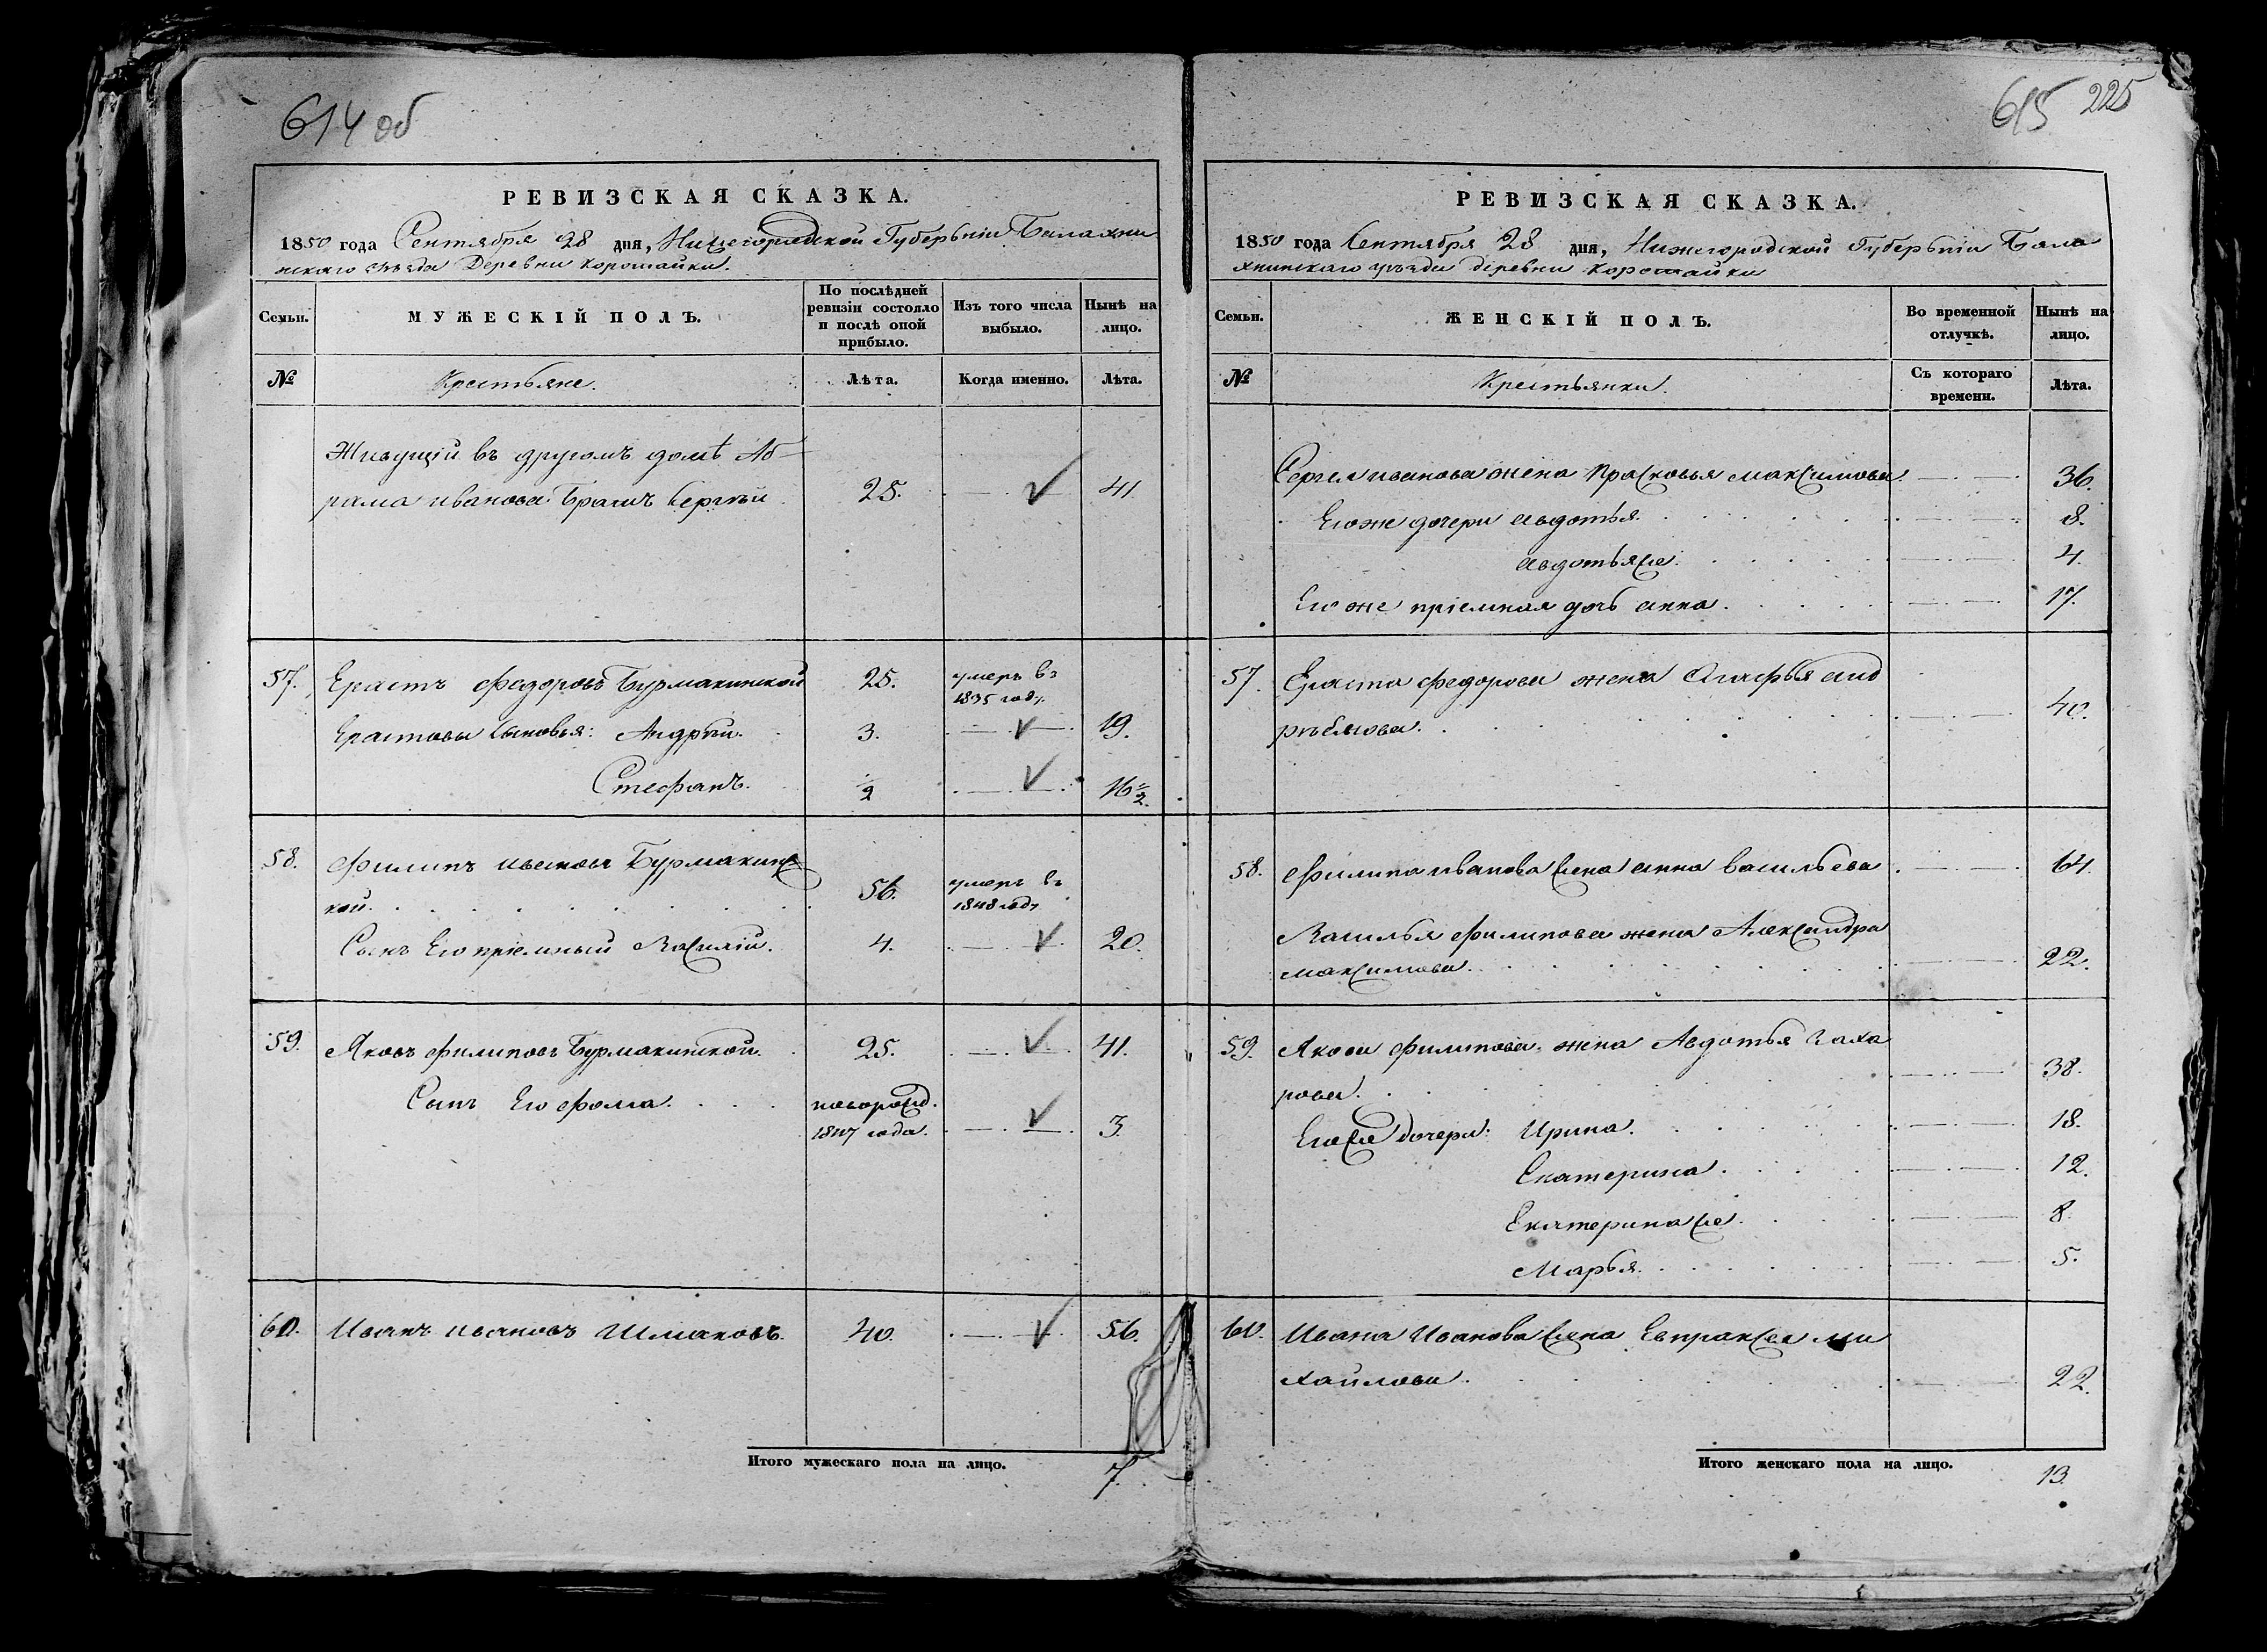 614 об
РЕВИЗСКАЯ СКАЗКА.
1850 года Сентября 28 дня, Нижегородской Губерьніи Балахни
нскаго уѣзда Деревни Хорошайки.
Семьи.
МУЖЕСКІЙ ПОЛЪ.
По послѣдней ревизіи состояло и послѣ оной прибыло.
Изъ того числа выбыло.
Нынѣ на лицо.
№
Крестьяне.
Лѣта.
Когда именно.
Лѣта.
Живущій въ другомъ домѣ Аб
рама иванова Братъ Сергѣй 25. 41
57. Ерастъ федоровъ Бурмакинской 25. умеръ въ
1835 году.
Ерастовы сыновья: Андрѣй. 3. 19.
Стефанъ. 1/2 16 1/2.
58. Филипъ ивановъ Бурмакинс
кой. 56. умеръ въ
1848 году
Сынъ Его пріемный Василій. 4. 20.
59. Яковъ филиповъ Бурмакинской. 25. 41.
Сынъ Его фома. новорожд.
1847 года. 3.
60. Иванъ ивановъ Шмаковъ. 40. 56.
Итого мужескаго пола на лицо. 7.
615 225
РЕВИЗСКАЯ СКАЗКА.
1850 года Сентября 28 дня, Нижегородской Губерьніи Бала
хнинскаго уѣзда деревни Хорошайки
Семьи.
ЖЕНСКІЙ ПОЛЪ.
Во временной отлучкѣ.
Нынѣ на лицо.
№
Крестьянки.
Съ котораго времени.
Лѣта.
Сергея иванова жена Прасковья максимова. 36.
Егоже дочери авдотья. 8.
авдотьяже. 4.
Егоже пріемная дочь анна. 17.
57. Ераста федорова жена Агафья анд
рѣянова. 40.
58. Филипа иванова жена анна васильева 64.
Василья филипова жена Александра
максимова. 22.
59. Якова филипова жена Авдотья Заха
рова. 38.
Егоже дочери: Ирина. 18.
Екатерина. 12.
Екатеринаже. 8.
Марья. 5.
60. Ивана Иванова жена Евпраксея ми
хайлова. 22.
Итого женскаго пола на лицо. 13.